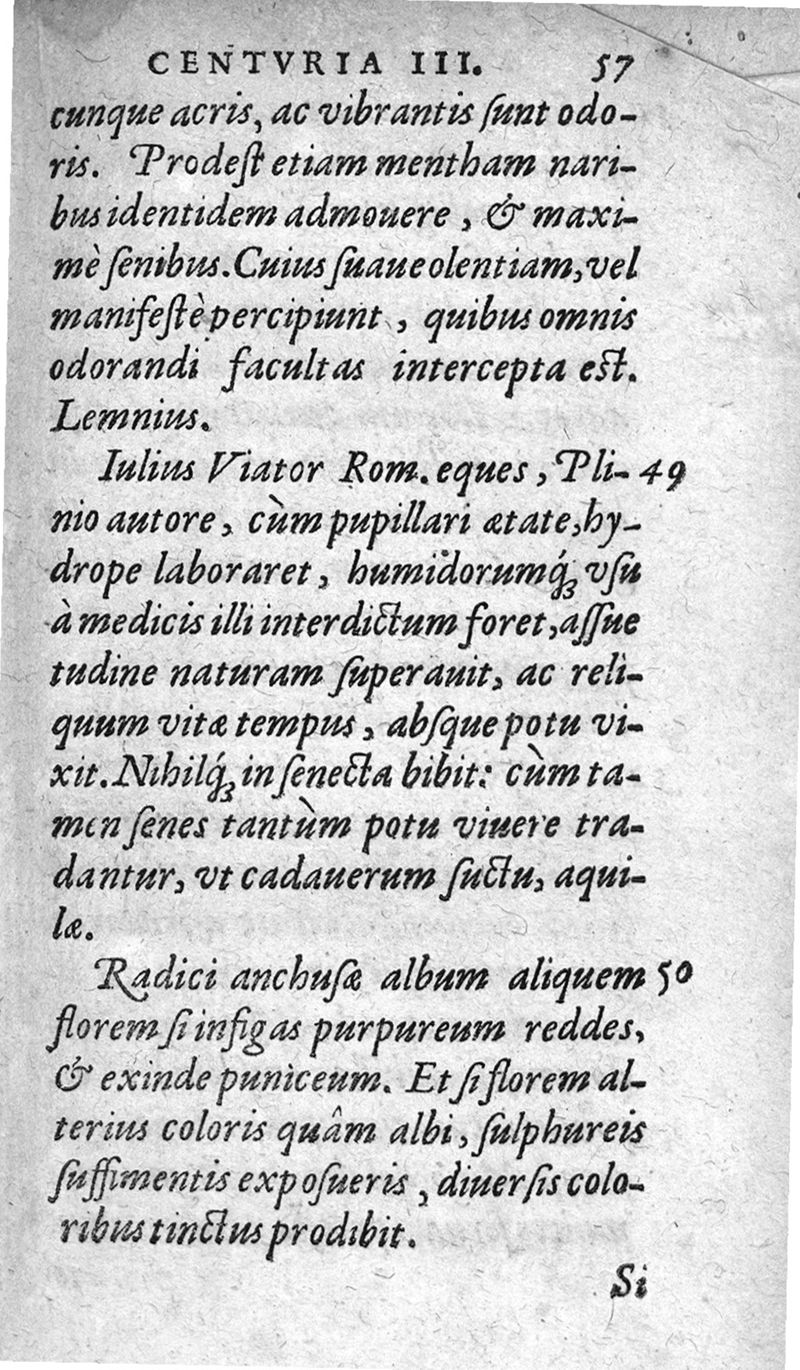 CENTVRIA III. 57
cunque acris, ac vibrantis ſunt odo-
ris. Prodeſt etiam mentham nari-
bus identidem admouere, & maxi-
mè ſenibus. Cuius ſuaue olentiam, vel
manifeſtè percipiunt, quibus omnis
odorandi facultas intercepta eſt.
Lemnius.
Iulius Viator Rom. eques, Pli- 49
nio autore, cùm pupillari ætate, hy-
drope laboraret, humidorumq́ꝫ vſu
à medicis illi interdictum foret, aſſue
tudine naturam ſuperauit, ac reli-
quum vitæ tempus, abſque potu vi-
xit. Nihilq́ꝫ in ſenecta bibit: cùm ta-
men ſenes tantùm potu viuere tra-
dantur, vt cadauerum ſuctu, aqui-
læ.
Radici anchuſæ album aliquem 50
florem ſi infigas purpureum reddes,
& exinde puniceum. Et ſi florem al-
terius coloris quâm albi, ſulphureis
ſuffimentis expoſueris, diuerſis colo-
ribus tinctus prodibit.
Si